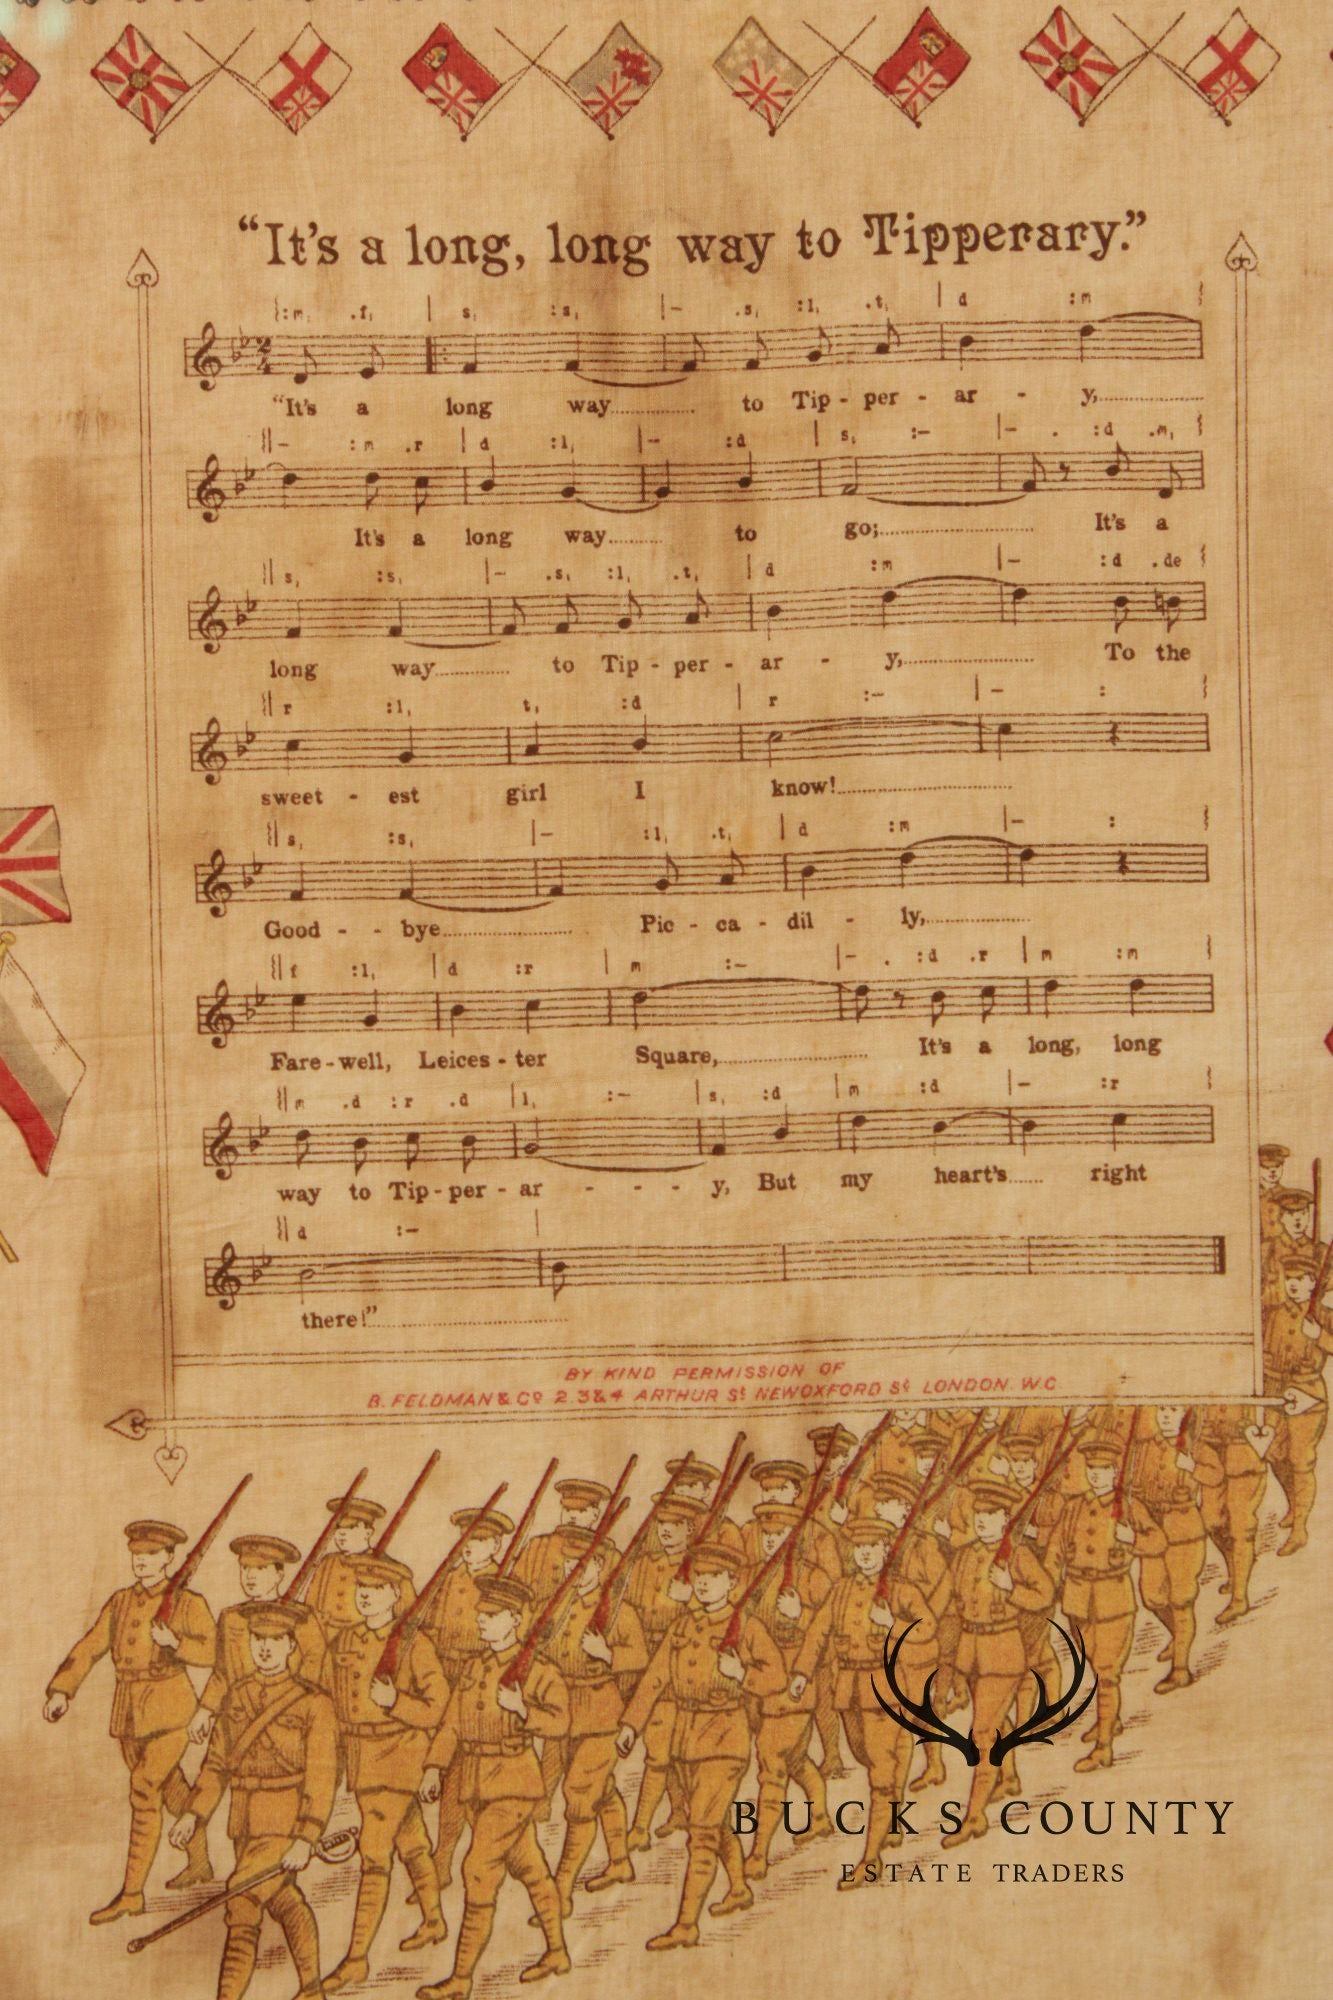 “It's a long, long way to Tipperary.”
{:m, .f, | s, :s, |– .s, :l, .t, | d :m }
“It's a long way............ to Tip - per - ar - y,............
{|– :m .r | d :l, |– :d | s, :– |– . :d .m, }
It's a long way............ to go;............ It's a
{| s, :s, |– .s, :l, .t, | d :m |– :d .de }
long way............ to Tip - per - ar - y,............ To the
{| r :l, t, :d | r :– |– : }
sweet - est girl I know!............
{| s, :s, |– :l, .t, | d :m |– : }
Good - - bye............ Pic - ca - dil - ly,............
{| f :l, | d :r | m :– |– . :d .r | m :m }
Fare-well, Leices - ter Square,............ It's a long, long
{| m .d :r .d | l, :– | s, :d | m :d |– :r }
way to Tip-per - ar - - - y, But my heart's...... right
{| d :– |
there!”............
BY KIND PERMISSION OF
B. FELDMAN & Co 2.3&4 ARTHUR St NEWOXFORD St LONDON. W.C.
BUCKS COUNTY
ESTATE TRADERS